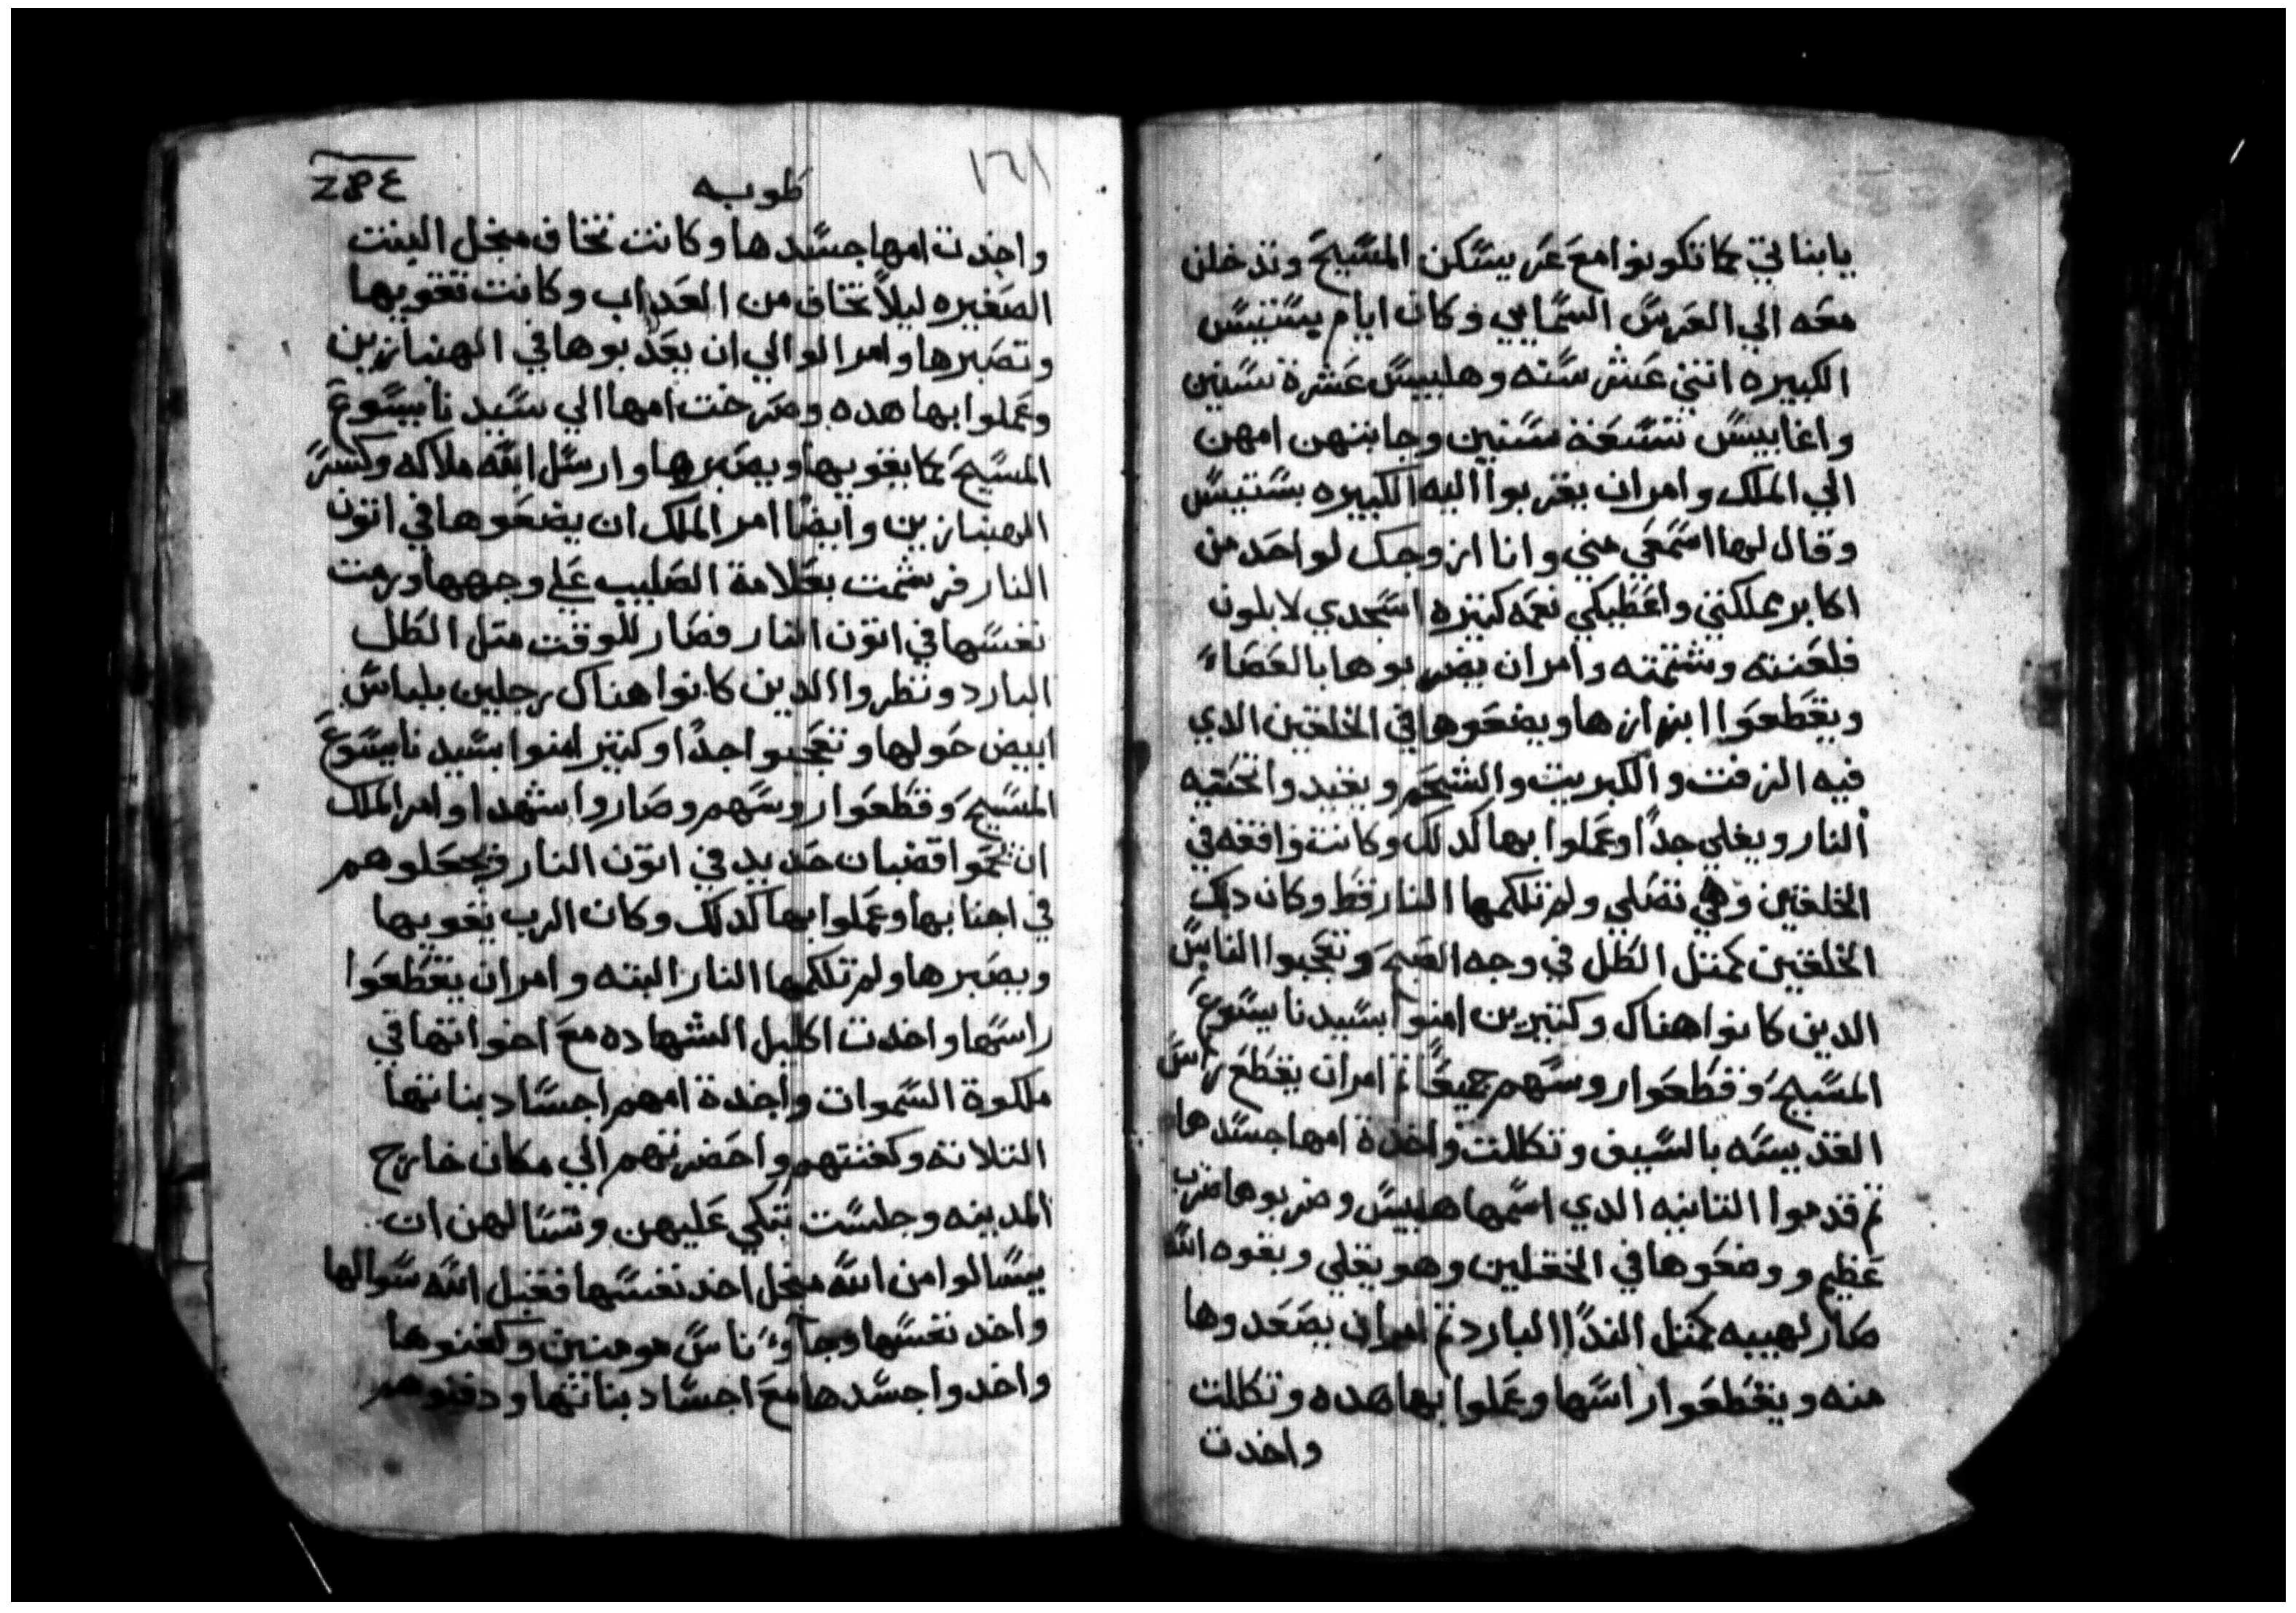 يابناتي كما تكونوا مع عريسكن المسيح وتدخلن
معه الي العرس السمايي وكان ايام بستيس
الكبيره اتني عشر سنه وهلبيس عشرة سنين
واغابيس تسعة سنين وجابتهن امهن
الي الملك وامر ان يقربوا اليه الكبيره بستيس
وقال لها اسمعي مني وانا ازوجك لواحد من
اكابر مملكتي واعطيكي نعمه كتيره اسجدي لابلون
فلعنته وشتمته وامر ان يضربوها بالعصاء
ويقطعوا ابزازها ويضعوها في الخلقين الدي
فيه الزفت والكبريت والشحم ويقيد واتحتيه
النار ويغلي جدا وعملوا بها كدلك وكانت واقفه في
الخلقين وهي تصلي ولم تلكمها النار قط وكان دلك
الخلقين كمتل الطل في وجه الصبح وتعجبوا الناس
الدين كانوا هناك وكتيرين امنوا بسيدنا يسوع
المسيح وقطعوا روسهم جميعا تم امر ان يقطع راس
القديسه بالسيف وتكللت واخدة امها جسدها
تم قدموا التانيه الدي اسمها هلبيس وضربوها ضرب
عظيم ووضعوها في الخقلين وهو يغلي وبقوه الله
صار لهيبه كمتل الندا البارد تم امر ان يصعدوها
منه ويقطعوا راسها وعملوا بها هده وتكللت
واخدت
١٦١
طوبه
واخدت امها جسدها وكانت تخاف منجل البنت
الصغيره ليلا تخاف من العداب وكانت تقويها
وتصبرها وامر الوالي ان يعدبوها في الهنبازين
وعملوا بها هده وصرخت امها الي سيدنا يسوع
المسيح كما يقويها ويصبرها وارسل الله ملاكه وكسر
الهنبازين وايضا امر الملك ان يضعوها في اتون
النار فرشمت بعلامة الصليب علي وجهها ورمت
نفسها في اتون النار فصار للوقت متل الطل
البارد ونظروا الدين كانوا هناك رجلين بلباس
ابيض حولها وتعجبوا جدا وكتير امنوا بسيدنا يسوع
المسيح وقطعوا روسهم وصاروا شهدا وامر الملك
ان تحموا قضبان حديد في اتون النار ويجعلوهم
في اجنابها وعملوا بها كدلك وكان الرب يقويها
ويصبرها ولم تلكمها النار البته وامر ان يقطعوا
راسها واخدت اكليل الشهاده مع اخواتها في
ملكوة السموات واخدة امهم اجساد بناتها
التلاته وكفنتهم واحضرتهم الي مكان خارج
المدينه وجلست تبكي عليهن وتسالهن ان
يسالوا من الله منجل اخد نفسها فقبل الله سوالها
واخد نفسها وجاوء ناس مومنين وكفنوها
واخدوا جسدها مع اجساد بناتها ودفنوهم